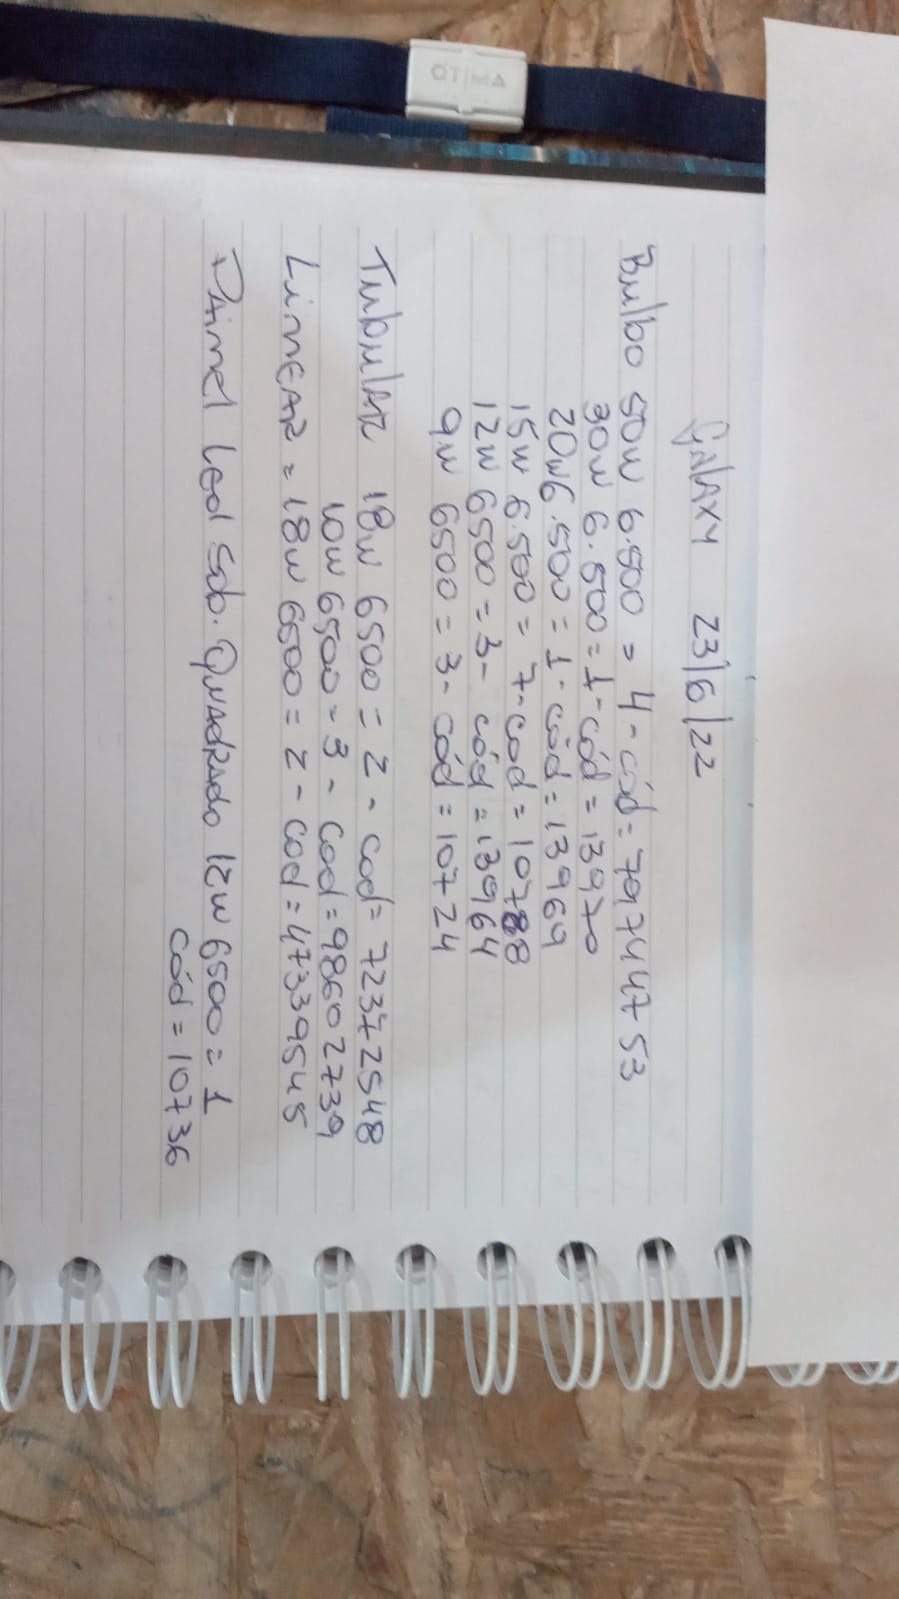 OTIMA
GALAXY 23/6/22
Bulbo 50W 6.500 = 4 - cód = 79744753
30W 6.500 = 1 - cód = 13970
20W 6.500 = 1 - cód = 13969
15W 6.500 = 7 - cod = 10788
12W 6500 = 3 - cód = 13964
9W 6500 = 3 - cód = 10724
TubulAR 18W 6500 = 2 - cod = 72372548
10W 6500 = 3 - cod = 98602739
LinnEAR = 18W 6500 = 2 - cod = 47339545
PAinel led Sob. QuAdRado 12W 6500 = 1
cód = 10736